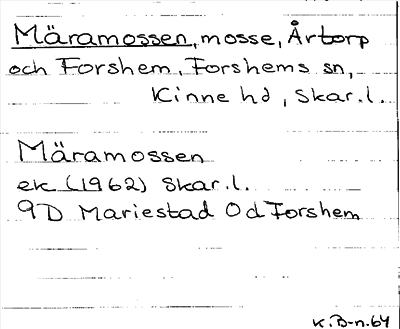 Märamossen, mosse, Årtorp
och Forshem, Forshems sn,
Kinne hd, Skar.l.
Märamossen
ek (1962) Skar.l.
9D Mariestad Od Forshem
K.B-n.64